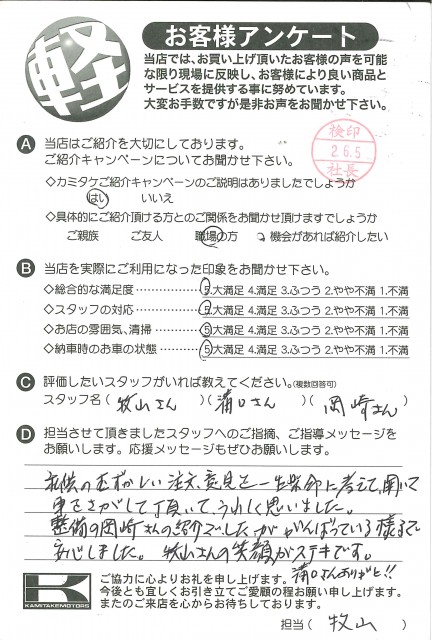 軽
お客様アンケート
当店では、お買い上げ頂いたお客様の声を可能
な限り現場に反映し、お客様により良い商品と
サービスを提供する事に努めています。
大変お手数ですが是非お声をお聞かせ下さい。
検印
26.5
社長
A 当店はご紹介を大切にしております。
ご紹介キャンペーンについてお聞かせ下さい。
◇カミタケご紹介キャンペーンのご説明はありましたでしょうか
はい いいえ
◇具体的にご紹介頂ける方とのご関係をお聞かせ頂けますでしょうか
ご親族 ご友人 職場の方 機会があれば紹介したい
B 当店を実際にご利用になった印象をお聞かせ下さい。
◇総合的な満足度 ………… 5.大満足 4.満足 3.ふつう 2.やや不満 1.不満
◇スタッフの対応 ………… 5.大満足 4.満足 3.ふつう 2.やや不満 1.不満
◇お店の雰囲気、清掃 ………… 5.大満足 4.満足 3.ふつう 2.やや不満 1.不満
◇納車時のお車の状態 ………… 5.大満足 4.満足 3.ふつう 2.やや不満 1.不満
C 評価したいスタッフがいれば教えてください。(複数回答可)
スタッフ名(牧山さん)(蒲口さん)(岡崎さん)
D 担当させて頂きましたスタッフへのご指摘、ご指導メッセージを
お願いします。応援メッセージもぜひお願いします。
私供のむずかしい注文、意見を一生懸命に考えて、聞いて
車をさがして頂いて、うれしく思いました。
整備の岡崎さんの紹介でしたが、がんばっている様子で
安心しました。 牧山さんの笑顔がステキです。
蒲口さんありがと!!
K
KAMITAKEMOTORS
ご協力に心よりお礼を申し上げます。
今後とも宜しくお引き立てご愛顧の程お願い申し上げます。
またのご来店を心からお待ちしております。
担当(牧山)